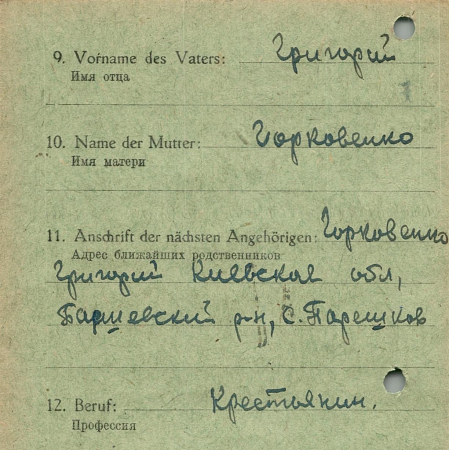 9. Vorname des Vaters: Григорий
Имя отца
10. Name der Mutter: Горковенко
Имя матери
11. Anschrift der nächsten Angehörigen: Горковенко
Адрес ближайших родственников
Григорий Киевская обл,
Барышевский р-н, С. Парешков
12. Beruf: Крестьянин.
Профессия